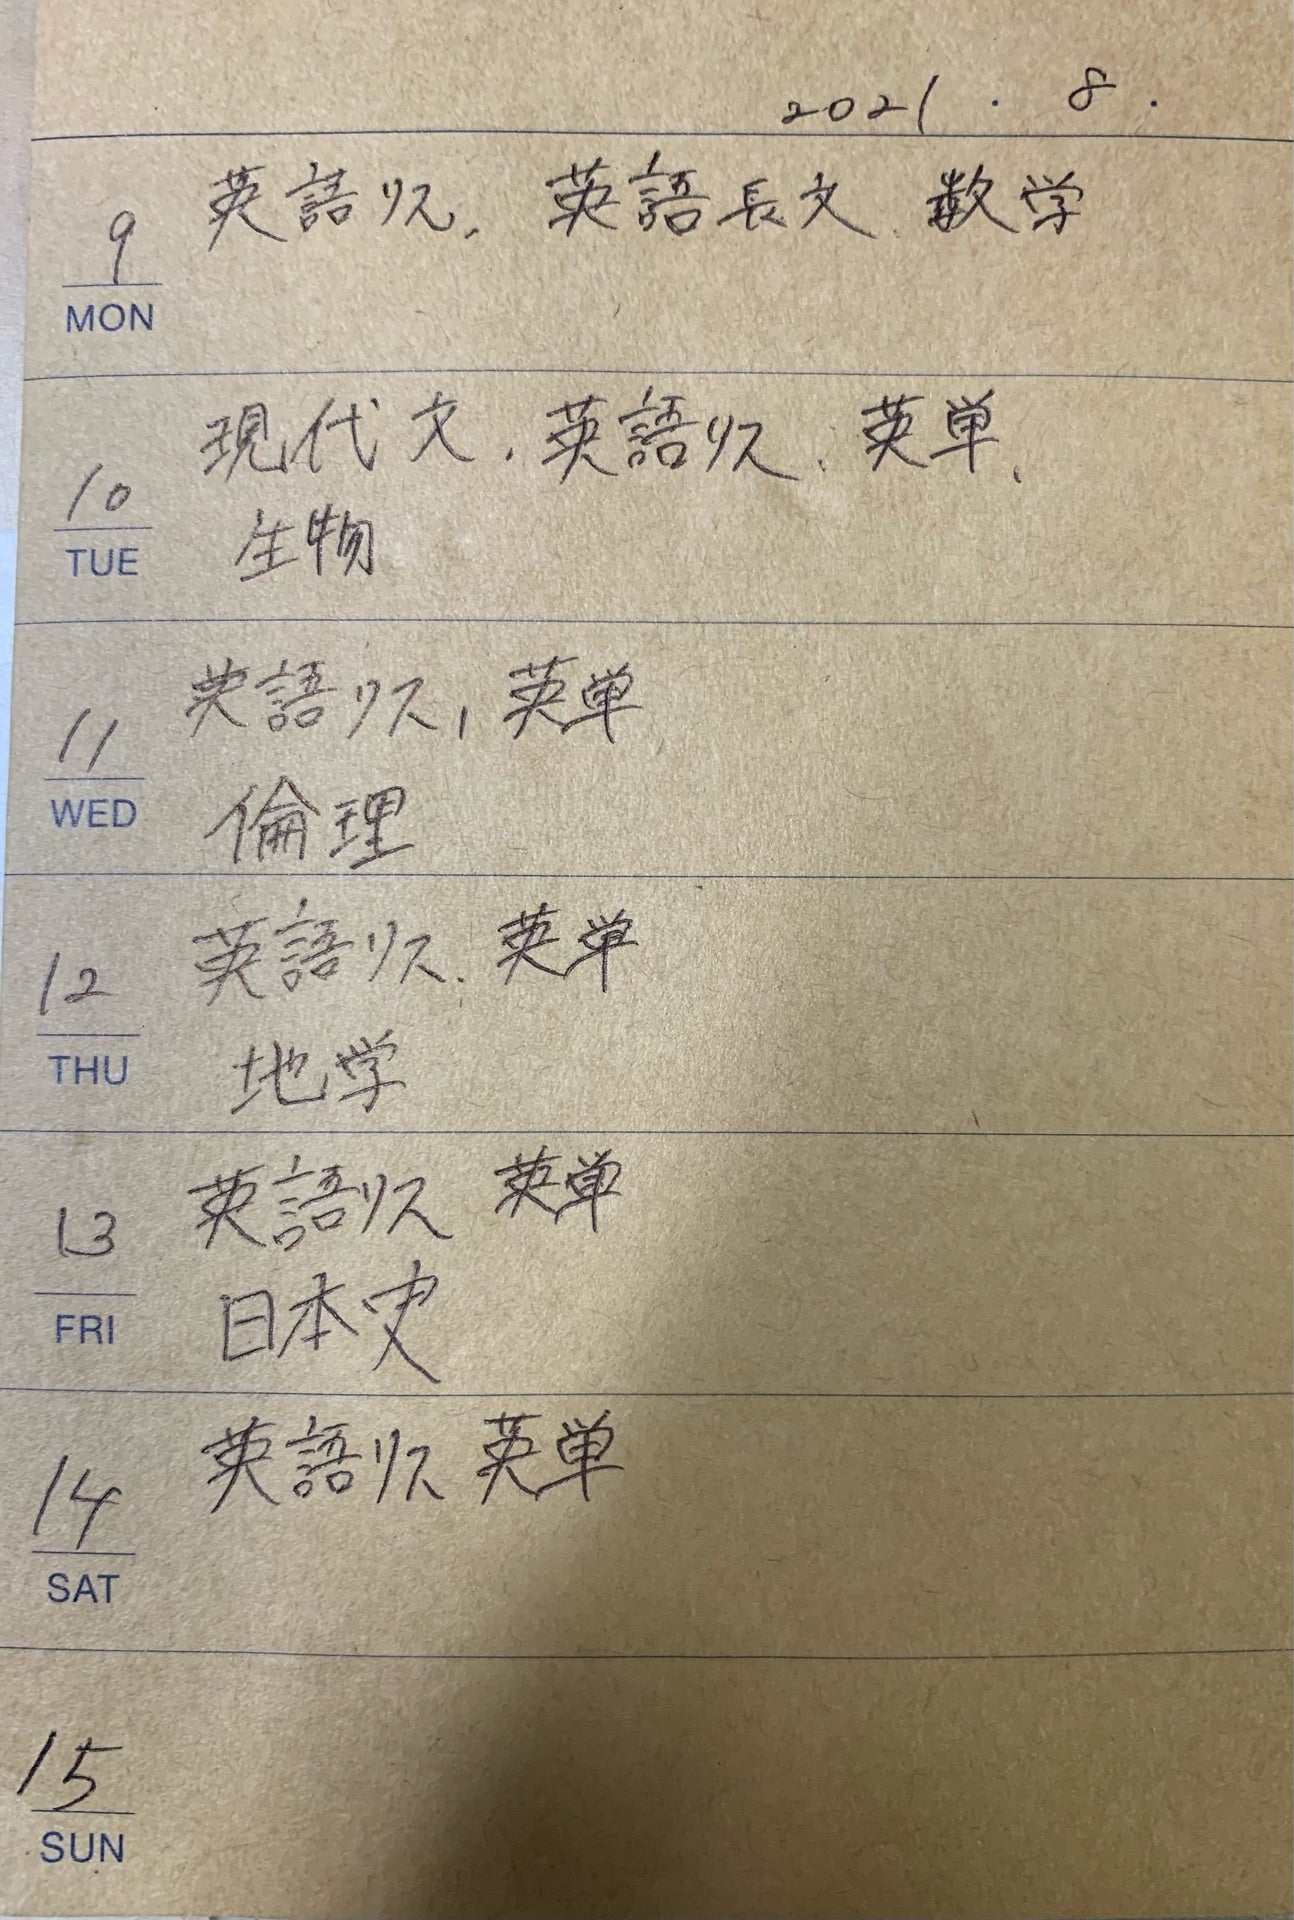 2021 . 8 .
英語リス, 英語長文, 数学
9
MON
現代文, 英語リス, 英単,
10
生物
TUE
英語リス, 英単
11
WED
倫理
英語リス, 英単
12
THU
地学
英語リス 英単
13
FRI
日本史
英語リス 英単
14
SAT
15
SUN